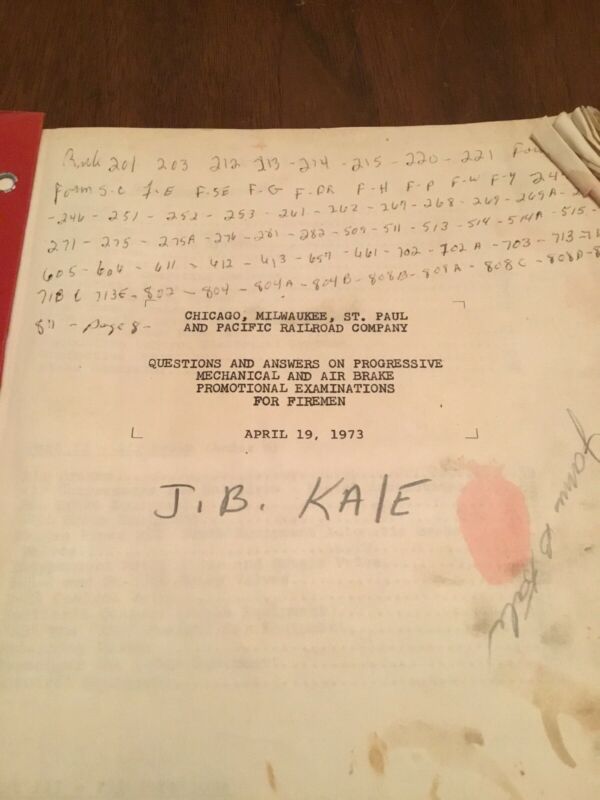 Rule 201 203 212 213 - 214 - 215 - 220 - 221
Form S-C F-E F-SE F-G F-DR F-H F-P F-W F-Y
- 246 - 251 - 252 - 253 - 261 - 262 - 267 - 268 - 269 - 269A -
271 - 275 - 275A - 276 - 281 - 282 - 509 - 511 - 513 - 514 - 514A - 515 -
605 - 606 - 611 - 612 - 613 - 657 - 661 - 702 - 702A - 703 - 713 -
713E - 802 - 804 - 804A - 804B - 808B - 808A - 808C - 808D -
811 - page 8 -
CHICAGO, MILWAUKEE, ST. PAUL
AND PACIFIC RAILROAD COMPANY
QUESTIONS AND ANSWERS ON PROGRESSIVE
MECHANICAL AND AIR BRAKE
PROMOTIONAL EXAMINATIONS
FOR FIREMEN
APRIL 19, 1973
J.B. KALE
James B Kale